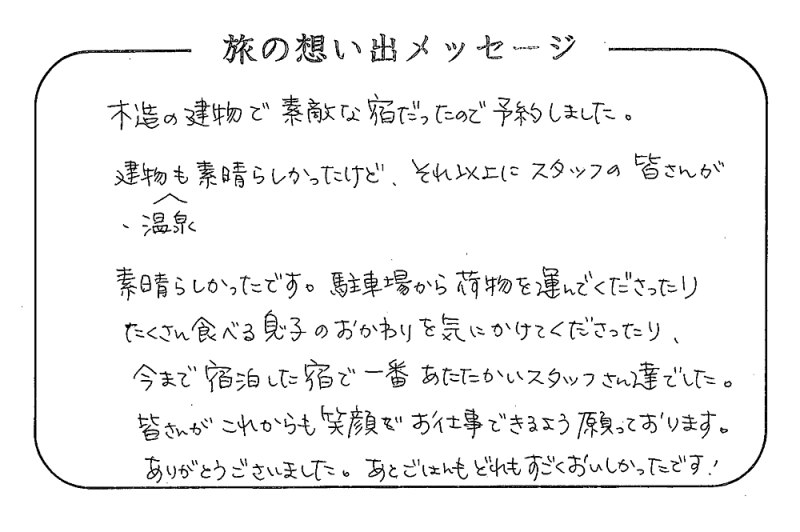 旅の想い出メッセージ
木造の建物で素敵な宿だったので予約しました。
建物も素晴らしかったけど、それ以上にスタッフの皆さんが
、温泉
素晴らしかったです。駐車場から荷物を運んでくださったり
たくさん食べる息子のおかわりを気にかけてくださったり、
今まで宿泊した宿で一番あたたかいスタッフさん達でした。
皆さんがこれからも笑顔でお仕事できるよう願っております。
ありがとうございました。あとごはんもどれもすごくおいしかったです!